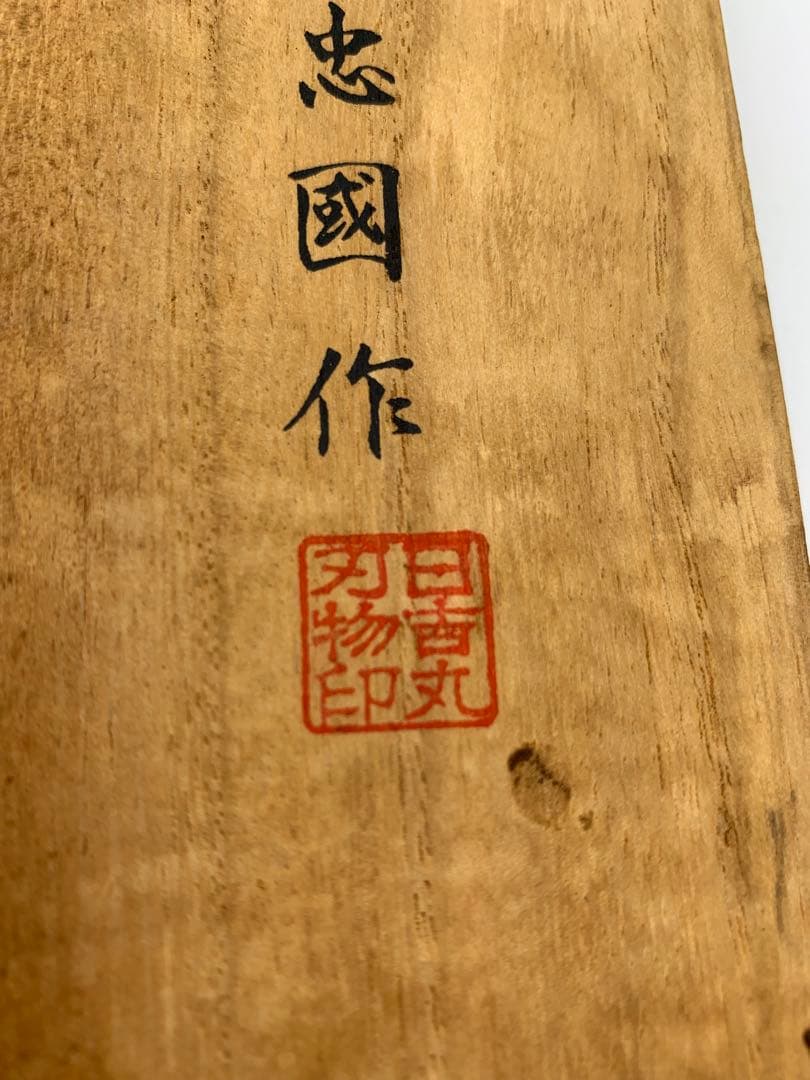 忠國作
日吉丸
刃物印